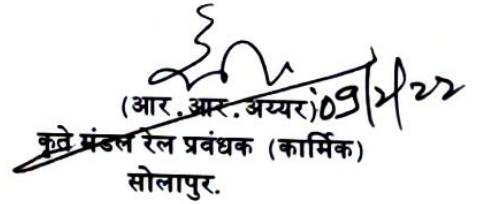 (आर.आर.अय्यर) 09/2/22
कृते मंडल रेल प्रबंधक (कार्मिक)
सोलापुर.